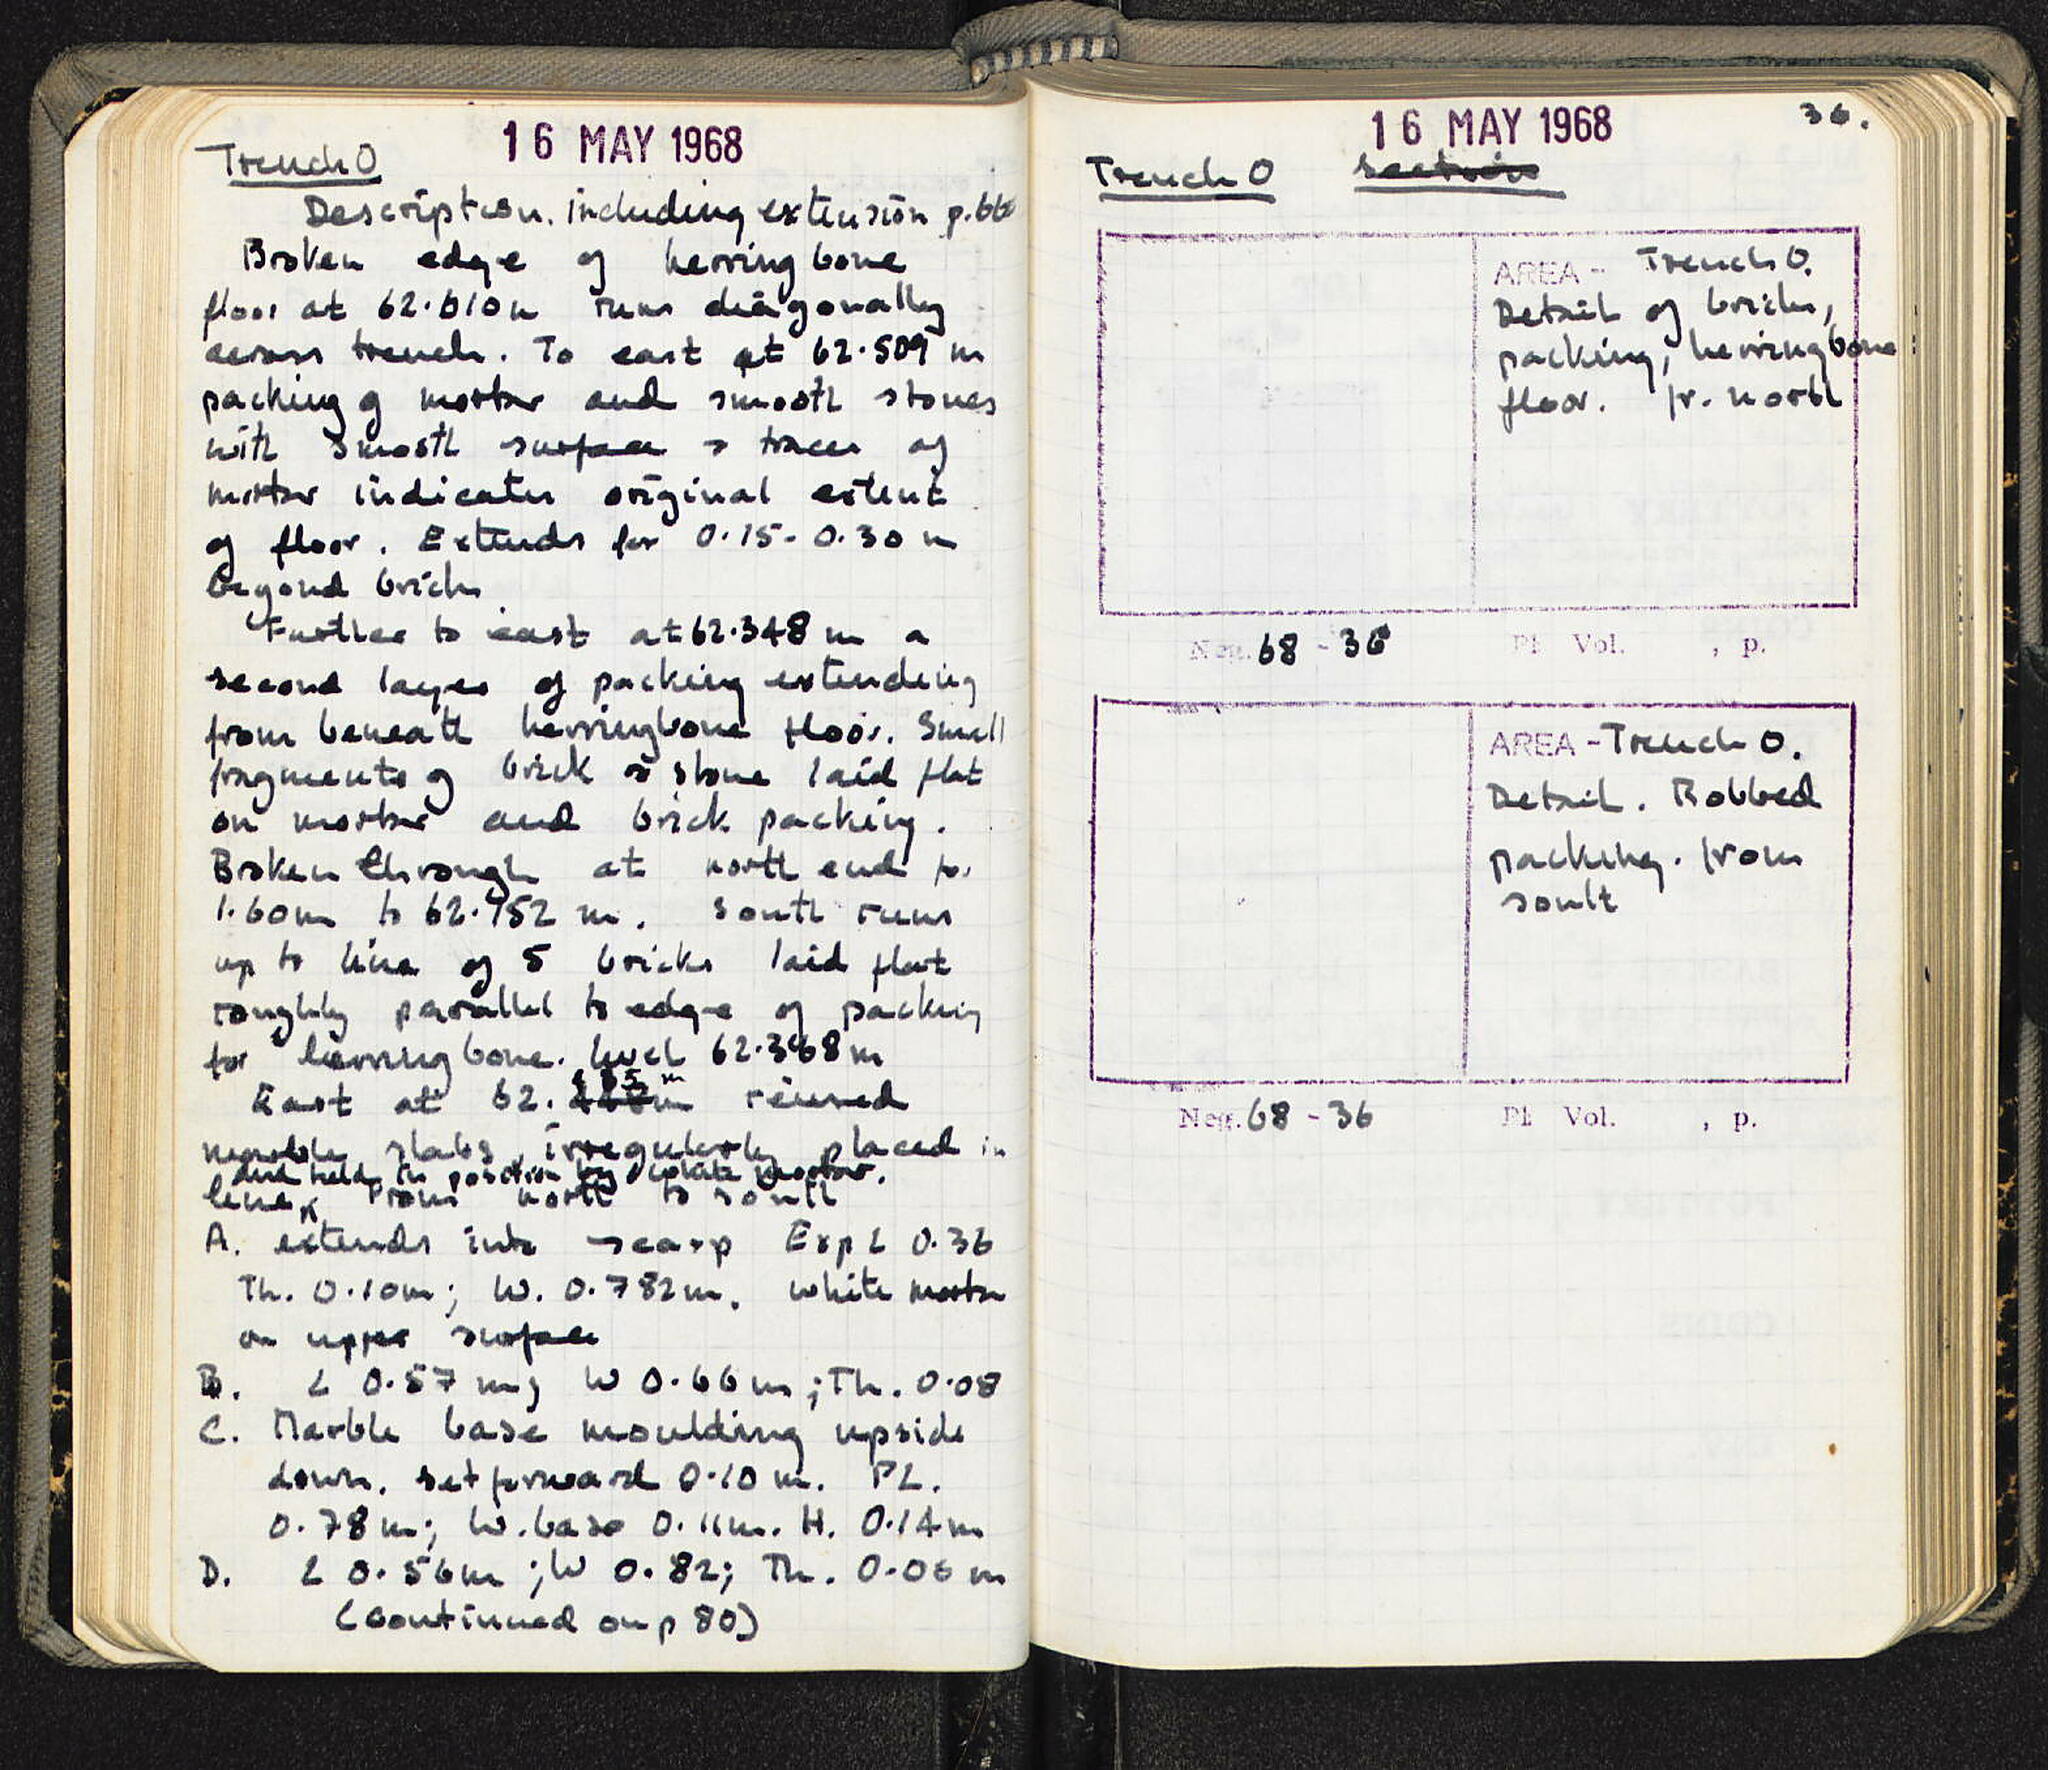 16 MAY 1968
Trench O
Description. including extension p.66
Broken edge of herringbone
floor at 62.610m runs diagonally
across trench. To east at 62.509 m
packing of mortar and smooth stones
with smooth surface & traces of
mortar indicates original extent
of floor. Extends for 0.15-0.30 m
beyond bricks
Further to east at 62.348 m a
second layer of packing extending
from beneath herringbone floor. Small
fragments of brick & stone laid flat
on mortar and brick packing.
Broken through at north end for
1.60m to 62.152 m. South runs
up to line of 5 bricks laid flat
roughly parallel to edge of packing
for herringbone. level 62.368m
East at 62. m reused
marble slabs, irregularly placed in
and held in position by white mortar.
line, From north to south
A. extends into scarp Exp L 0.36
Th. 0.10m; W. 0.782m. white mortar
on upper surface
B. L 0.57 m; W 0.66m; Th. 0.08
C. Marble base moulding upside
down. set forward 0.10 m. PL.
0.78m; W. base 0.11m. H. 0.14m
D. L 0.56m; W 0.82; Th. 0.06 m
(continued on p 80)
16 MAY 1968
36.
Trench O section
AREA - Trench O.
Detail of bricks,
packing, herringbone
floor. fr. north
Neg. 68 - 36 Pl. Vol. , p.
AREA - Trench O.
Detail. Robbed
packing. from
south
Neg. 68 - 36 Pl. Vol. , p.